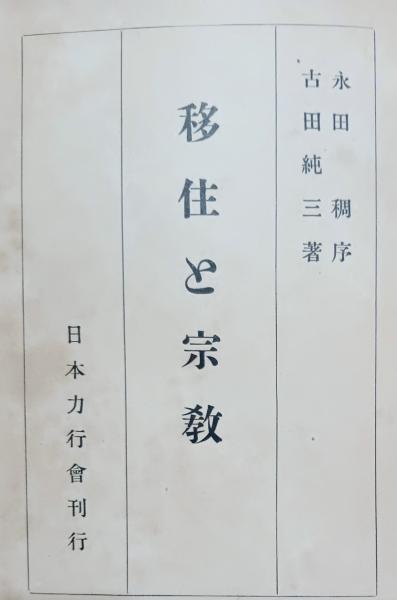 永田 稠序
古田純三著
移住と宗教
日本力行會刊行